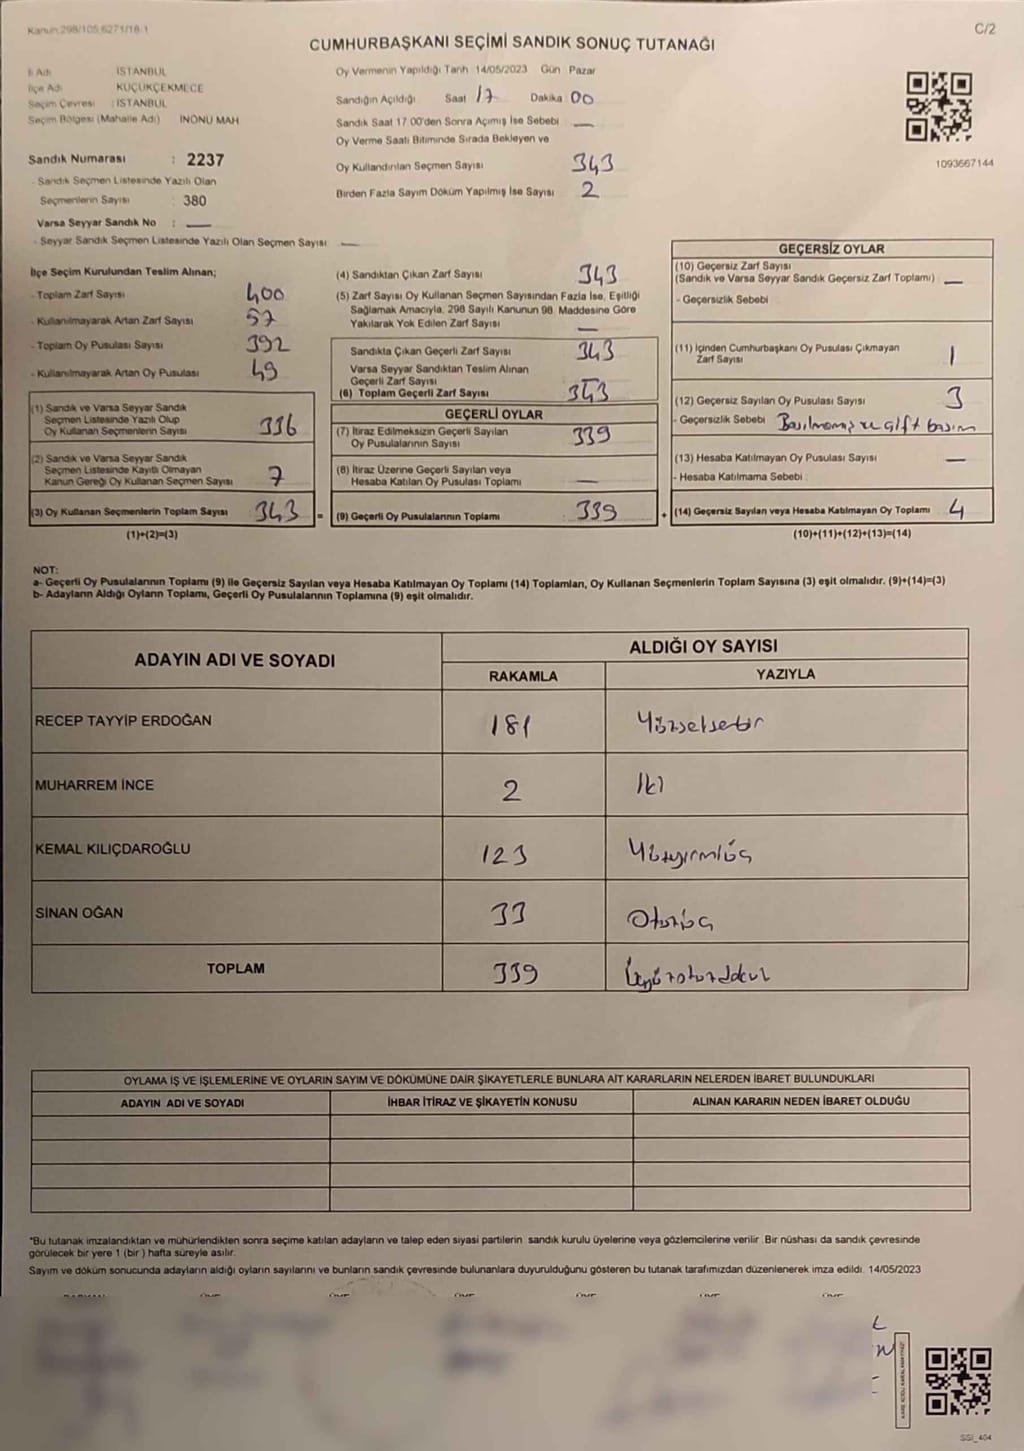 Kanun:298/105,6271/18-1
C/2
CUMHURBAŞKANI SEÇİMİ SANDIK SONUÇ TUTANAĞI
İl Adı İSTANBUL
İlçe Adı KÜÇÜKÇEKMECE
Seçim Çevresi : İSTANBUL
Seçim Bölgesi (Mahalle Adı) İNÖNÜ MAH
Sandık Numarası : 2237
- Sandık Seçmen Listesinde Yazılı Olan
Seçmenlerin Sayısı : 380
Varsa Seyyar Sandık No : —
- Seyyar Sandık Seçmen Listesinde Yazılı Olan Seçmen Sayısı —
Oy Vermenin Yapıldığı Tarih 14/05/2023 Gün Pazar
Sandığın Açıldığı Saat 17 Dakika 00
Sandık Saat 17.00'den Sonra Açılmış İse Sebebi —
Oy Verme Saati Bitiminde Sırada Bekleyen ve
Oy Kullandırılan Seçmen Sayısı 343
Birden Fazla Sayım Döküm Yapılmış İse Sayısı 2
1093667144
İlçe Seçim Kurulundan Teslim Alınan;
- Toplam Zarf Sayısı 400
- Kullanılmayarak Artan Zarf Sayısı 57
- Toplam Oy Pusulası Sayısı 392
- Kullanılmayarak Artan Oy Pusulası 49
(1) Sandık ve Varsa Seyyar Sandık
Seçmen Listesinde Yazılı Olup
Oy Kullanan Seçmenlerin Sayısı 336
(2) Sandık ve Varsa Seyyar Sandık
Seçmen Listesinde Kayıtlı Olmayan
Kanun Gereği Oy Kullanan Seçmen Sayısı 7
(3) Oy Kullanan Seçmenlerin Toplam Sayısı 343 =
(1)+(2)=(3)
(4) Sandıktan Çıkan Zarf Sayısı 343
(5) Zarf Sayısı Oy Kullanan Seçmen Sayısından Fazla İse, Eşitliği
Sağlamak Amacıyla, 298 Sayılı Kanunun 98. Maddesine Göre
Yakılarak Yok Edilen Zarf Sayısı —
Sandıkta Çıkan Geçerli Zarf Sayısı 343
Varsa Seyyar Sandıktan Teslim Alınan
Geçerli Zarf Sayısı
(6) Toplam Geçerli Zarf Sayısı 343
GEÇERLİ OYLAR
(7) İtiraz Edilmeksizin Geçerli Sayılan
Oy Pusulalarının Sayısı 339
(8) İtiraz Üzerine Geçerli Sayılan veya
Hesaba Katılan Oy Pusulası Toplamı —
(9) Geçerli Oy Pusulalarının Toplamı : 339 +
GEÇERSİZ OYLAR
(10) Geçersiz Zarf Sayısı
(Sandık ve Varsa Seyyar Sandık Geçersiz Zarf Toplamı) —
- Geçersizlik Sebebi
(11) İçinden Cumhurbaşkanı Oy Pusulası Çıkmayan
Zarf Sayısı 1
(12) Geçersiz Sayılan Oy Pusulası Sayısı 3
- Geçersizlik Sebebi Basılmamış ve çift basım
(13) Hesaba Katılmayan Oy Pusulası Sayısı —
- Hesaba Katılmama Sebebi
(14) Geçersiz Sayılan veya Hesaba Katılmayan Oy Toplamı 4
(10)+(11)+(12)+(13)=(14)
NOT:
a- Geçerli Oy Pusulalarının Toplamı (9) ile Geçersiz Sayılan veya Hesaba Katılmayan Oy Toplamı (14) Toplamları, Oy Kullanan Seçmenlerin Toplam Sayısına (3) eşit olmalıdır. (9)+(14)=(3)
b- Adayların Aldığı Oyların Toplamı, Geçerli Oy Pusulalarının Toplamına (9) eşit olmalıdır.
ADAYIN ADI VE SOYADI
ALDIĞI OY SAYISI
RAKAMLA YAZIYLA
RECEP TAYYİP ERDOĞAN 181 Yüzseksebir
MUHARREM İNCE 2 İki
KEMAL KILIÇDAROĞLU 123 Yüzyirmiüç
SİNAN OĞAN 33 Otuzüç
TOPLAM 339 Üçyüzotuzdokuz
OYLAMA İŞ VE İŞLEMLERİNE VE OYLARIN SAYIM VE DÖKÜMÜNE DAİR ŞİKAYETLERLE BUNLARA AİT KARARLARIN NELERDEN İBARET BULUNDUKLARI
ADAYIN ADI VE SOYADI İHBAR İTİRAZ VE ŞİKAYETİN KONUSU ALINAN KARARIN NEDEN İBARET OLDUĞU
"Bu tutanak imzalandıktan ve mühürlendikten sonra seçime katılan adayların ve talep eden siyasi partilerin sandık kurulu üyelerine veya gözlemcilerine verilir. Bir nüshası da sandık çevresinde
görülecek bir yere 1 (bir ) hafta süreyle asılır.
Sayım ve döküm sonucunda adayların aldığı oyların sayılarını ve bunların sandık çevresinde bulunanlara duyurulduğunu gösteren bu tutanak tarafımızdan düzenlenerek imza edildi. 14/05/2023
SSI_404